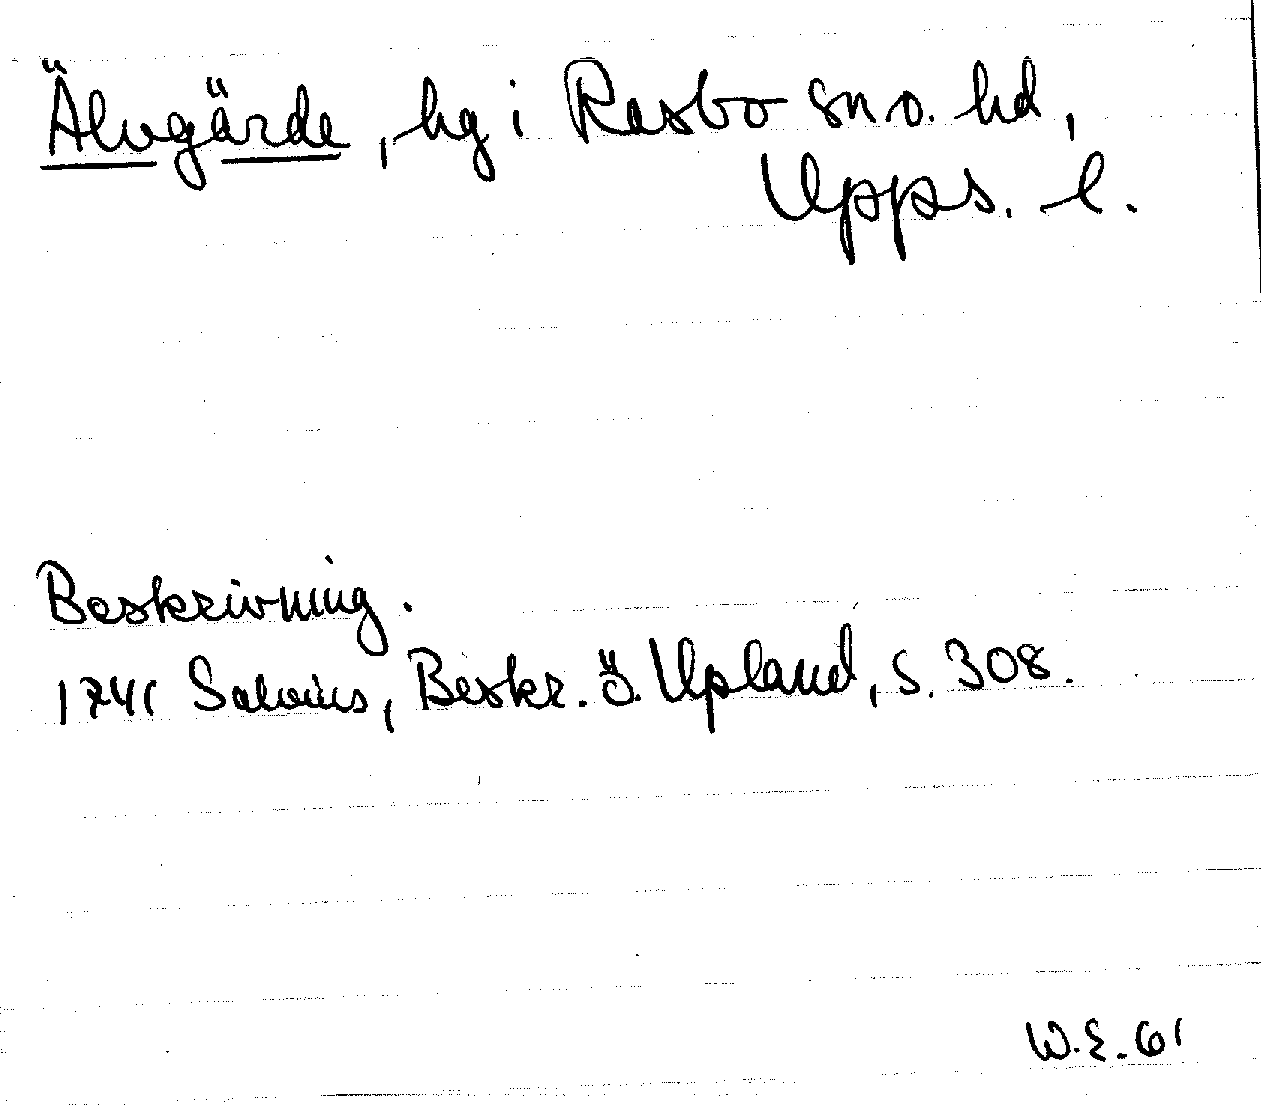 Älvgärde, hg i Rasbo sn o. hd,
Upps. l.
Beskrivning.
1741 Salvius, Beskr. ö. Upland, s. 308.
W.E. 61